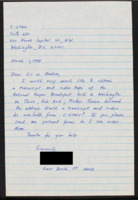 C-SPAN
Suite 650
400 North Capitol St., N.W.
Washington, D.C. 20001
March 1, 1995
Dear Sir or Madam,
I would very much like to obtain
a transcript and video tape of the
National Prayer Breakfast held in Washington
on This is the one Mother Teresa delivered
the address. Would a transcript and video
be available from C-SPAN? If yes, please
send me protocol forms so I can order
them.
Thanks for your help.
Sincerely,